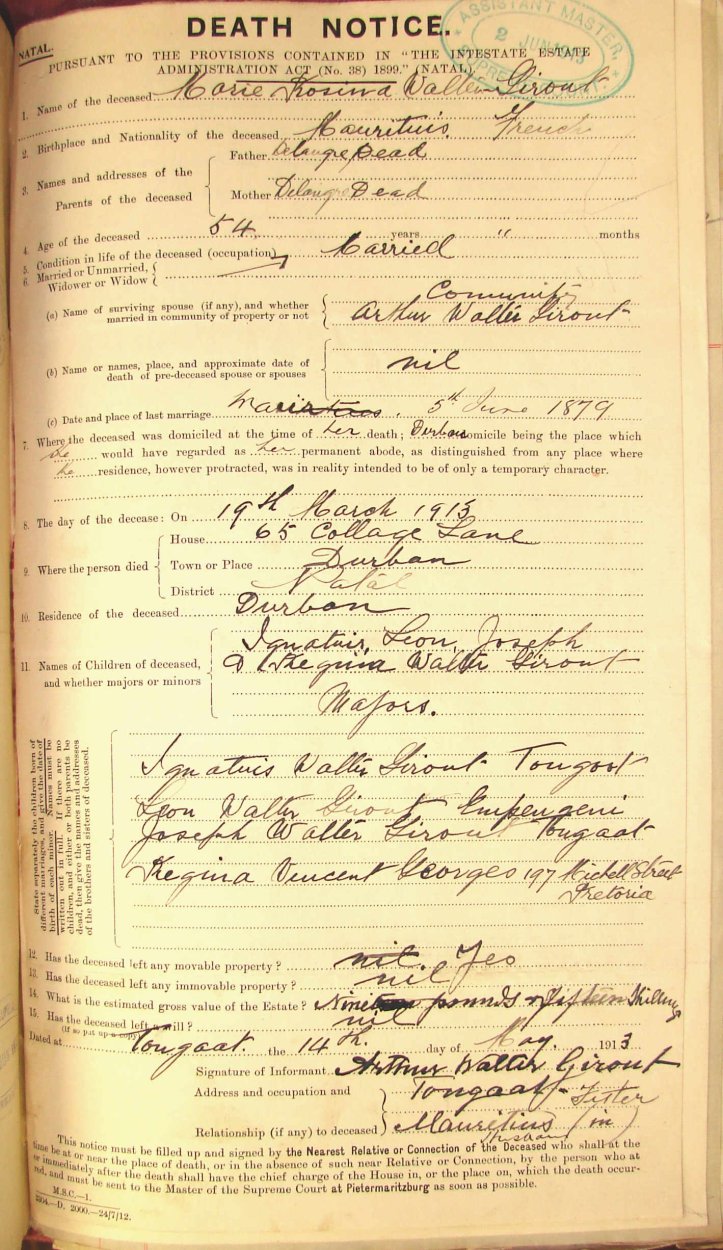 DEATH NOTICE.
NATAL.
ASSISTANT MASTER,
2 JUN 1913
PURSUANT TO THE PROVISIONS CONTAINED IN "THE INTESTATE ESTATE
ADMINISTRATION ACT (No. 38) 1899." (NATAL).
1. Name of the deceased Marie Rosina Walter Girout
2. Birthplace and Nationality of the deceased Mauritius French
3. Names and addresses of the Parents of the deceased
Father Delangre Dead
Mother Delangre Dead
4. Age of the deceased 54 years " months
5. Condition in life of the deceased (occupation)
6. Married or Unmarried, Widower or Widow Married
(a) Name of surviving spouse (if any), and whether married in community of property or not
Comunity
Arthur Walter Girout
(b) Name or names, place, and approximate date of death of pre-deceased spouse or spouses
nil
(c) Date and place of last marriage 5th June 1879
7. Where the deceased was domiciled at the time of her death; Durban domicile being the place which
she would have regarded as her permanent abode, as distinguished from any place where
he residence, however protracted, was in reality intended to be of only a temporary character.
8. The day of the decease: On 19th March 1913
9. Where the person died
House 65 Collage Lane
Town or Place Durban
District Natal
10. Residence of the deceased Durban
11. Names of Children of deceased, and whether majors or minors
Ignatuis, Leon, Joseph
Regina Walter Girout
Majors.
State separately the children born of
different marriages, and give the date of
birth of each minor. Names must be
written out in full. If there are no
children, and either or both parents be
dead, then give the names and addresses
of the brothers and sisters of deceased.
Ignatuis Walter Girout Tongaat
Leon Walter Girout Empengeni
Joseph Walter Girout Tongaat
Regina Vincent Georges 197 Michell Street
Pretoria
12. Has the deceased left any movable property? nil Yes
13. Has the deceased left any immovable property? nil
14. What is the estimated gross value of the Estate? pounds & Fifteen Shillings
15. Has the deceased left a will? nil
(If so put up a copy)
Dated at Tongaat. the 14th. day of May. 1913
Signature of Informant Arthur Walter Girout
Address and occupation and Tongaat
Relationship (if any) to deceased Mauritius (in
husband
This notice must be filled up and signed by the Nearest Relative or Connection of the Deceased who shall at the
time be at or near the place of death, or in the absence of such near Relative or Connection, by the person who at
or immediately after the death shall have the chief charge of the House in, or the place on, which the death occur-
red, and must be sent to the Master of the Supreme Court at Pietermaritzburg as soon as possible.
M.S.C.—1.
D. 2000.—24/7/12.